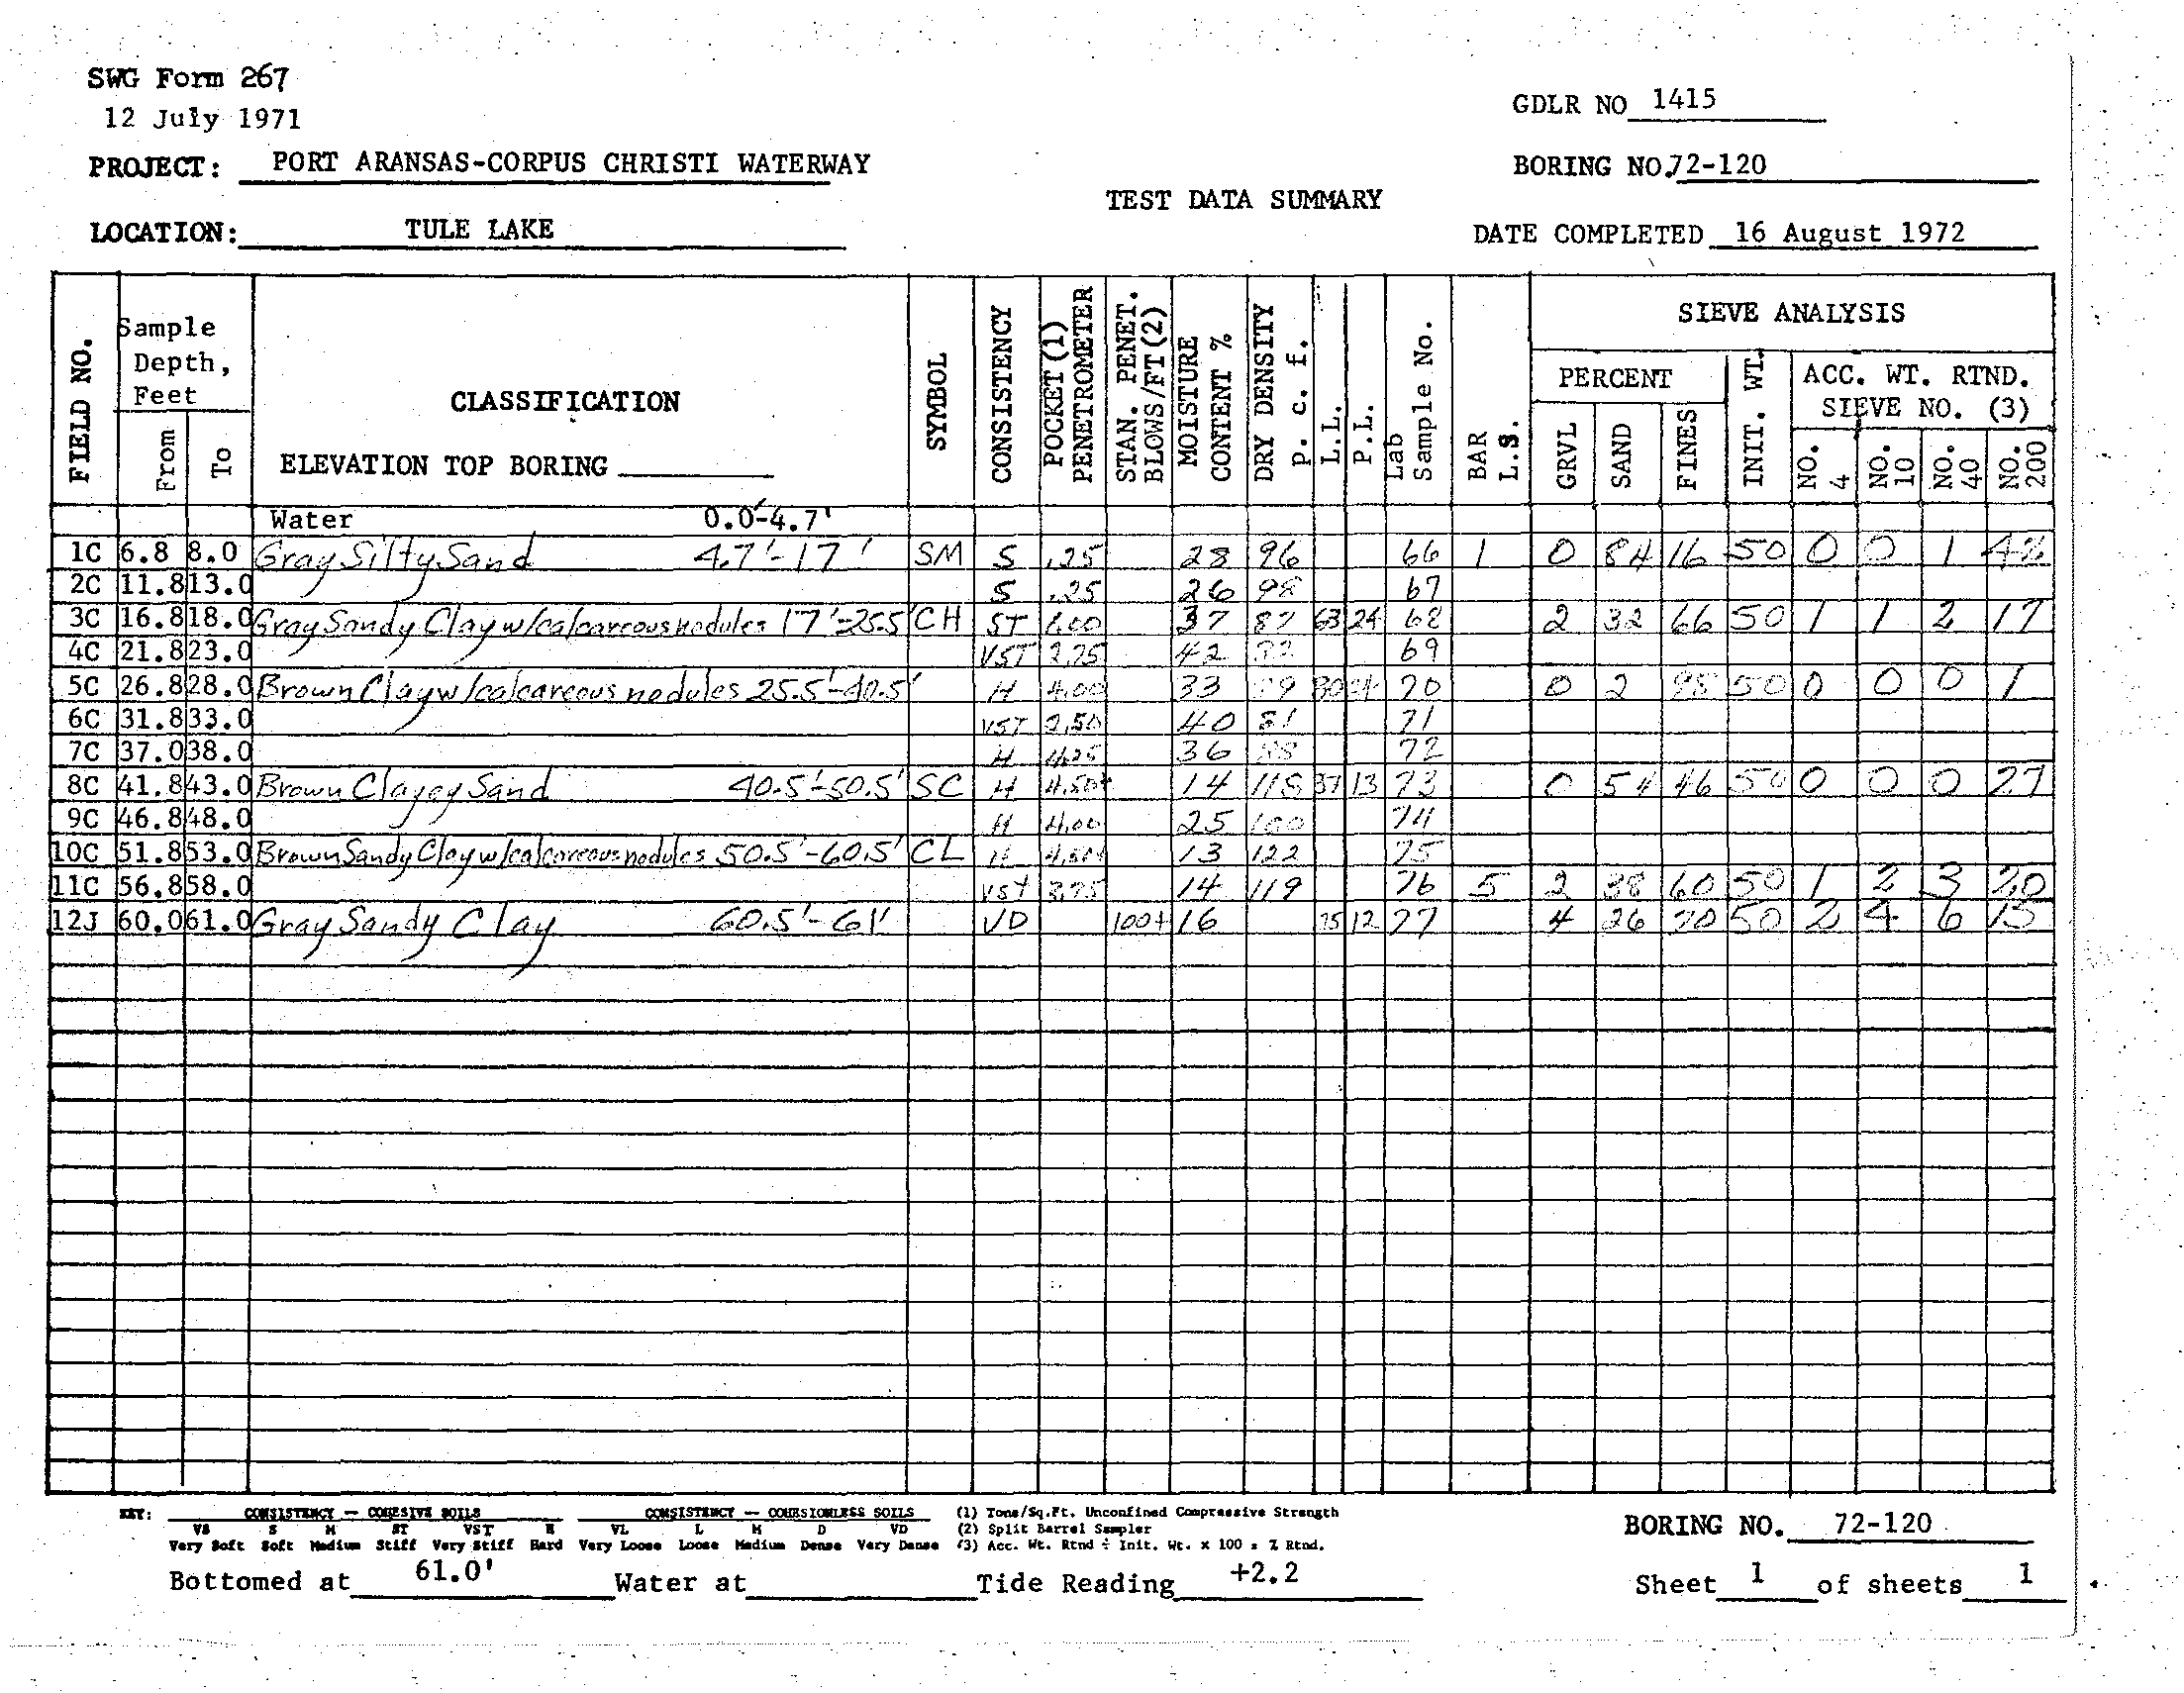 SWG Form 267
12 July 1971
GDLR NO 1415
PROJECT: PORT ARANSAS-CORPUS CHRISTI WATERWAY
BORING NO.72-120
TEST DATA SUMMARY
LOCATION: TULE LAKE
DATE COMPLETED 16 August 1972
FIELD NO.
Sample Depth, Feet
From To
CLASSIFICATION
ELEVATION TOP BORING
SYMBOL
CONSISTENCY
POCKET (1) PENETROMETER
STAN. PENET. BLOWS/FT (2)
MOISTURE CONTENT %
DRY DENSITY p. c. f.
L.L.
P.L.
Lab Sample No.
BAR L.S.
SIEVE ANALYSIS
PERCENT
GRVL SAND FINES
INIT. WT.
ACC. WT. RTND.
SIEVE NO. (3)
NO. 4 NO. 10 NO. 40 NO. 200
Water 0.0'-4.7'
1C 6.8 8.0 Gray Silty Sand 4.7'-17' SM S .25 28 96 66 1 0 84 16 50 0 0 1 42
2C 11.8 13.0 S .25 26 98 67
3C 16.8 18.0 Gray Sandy Clay w/calcareous nodules 17'-25.5' CH ST 1.00 37 87 63 24 68 2 32 66 50 1 1 2 17
4C 21.8 23.0 VST 2.75 42 69
5C 26.8 28.0 Brown Clay w/calcareous nodules 25.5'-40.5' H 4.00 33 70 0 2 98 50 0 0 0 1
6C 31.8 33.0 VST 2.50 40 81 71
7C 37.0 38.0 H 4.25 36 72
8C 41.8 43.0 Brown Clayey Sand 40.5'-50.5' SC H 4.50+ 14 118 37 13 73 0 54 46 50 0 0 0 27
9C 46.8 48.0 H 4.00 25 100 74
10C 51.8 53.0 Brown Sandy Clay w/calcareous nodules 50.5'-60.5' CL H 4.50+ 13 122 75
11C 56.8 58.0 VST 3.75 14 119 76 5 2 38 60 50 1 2 3 20
12J 60.0 61.0 Gray Sandy Clay 60.5'-61' VD 100+ 16 12 77 4 26 70 50 2 4 6 15
KEY: CONSISTENCY — COHESIVE SOILS CONSISTENCY — COHESIONLESS SOILS (1) Tons/Sq.Ft. Unconfined Compressive Strength
VS S M ST VST H VL L M D VD (2) Split Barrel Sampler
Very Soft Soft Medium Stiff Very Stiff Hard Very Loose Loose Medium Dense Very Dense (3) Acc. Wt. Rtnd ÷ Init. Wt. x 100 = % Rtnd.
BORING NO. 72-120
Bottomed at 61.0' Water at Tide Reading +2.2
Sheet 1 of sheets 1